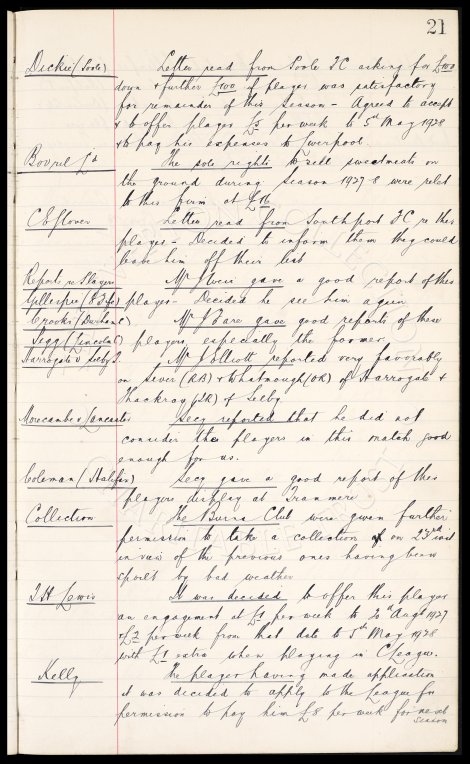 21
Dickie (Poole) Letter read from Poole FC asking for £100
down & further £100 if player was satisfactory
for remainder of this season - Agreed to accept
& to offer player £5 per week to 5th May 1928
& to pay his expenses to Liverpool.
Bovril Ld The sole rights to sell sweetmeats on
the ground during season 1927-8 were relet
to this firm at £16
C E Glover Letter read from Southport FC re this
player - Decided to inform them they could
leave him off their list
Reports re Players Mr Weir gave a good report of this
Gillespie (E Fife) player - Decided he see him again
Crooks (Durham C) Mr Bare gave good reports of these
Tegg (Lincoln C) players, especially the former
Harrogate v Selby T. Mr Elliott reported very favorably
on Sever (RB) & Whatmough (OR) of Harrogate &
Hackray (IR) of Selby
Morecambe v Lancaster Secy reported that he did not
consider the players in this match good
enough for us.
Coleman (Halifax) Secy gave a good report of this
players display at Tranmere
Collection The Burns Club were given further
permission to take a collection on 23rd inst
in view of the previous ones having been
spoilt by bad weather
J H Lewis It was decided to offer this player
an engagement at £1 per week to 20th Augt 1927
& £2 per week from that date to 5th May 1928
with £1 extra when playing in C League.
Kelly The player having made application
it was decided to apply to the League for
permission to pay him £8 per week for next
season